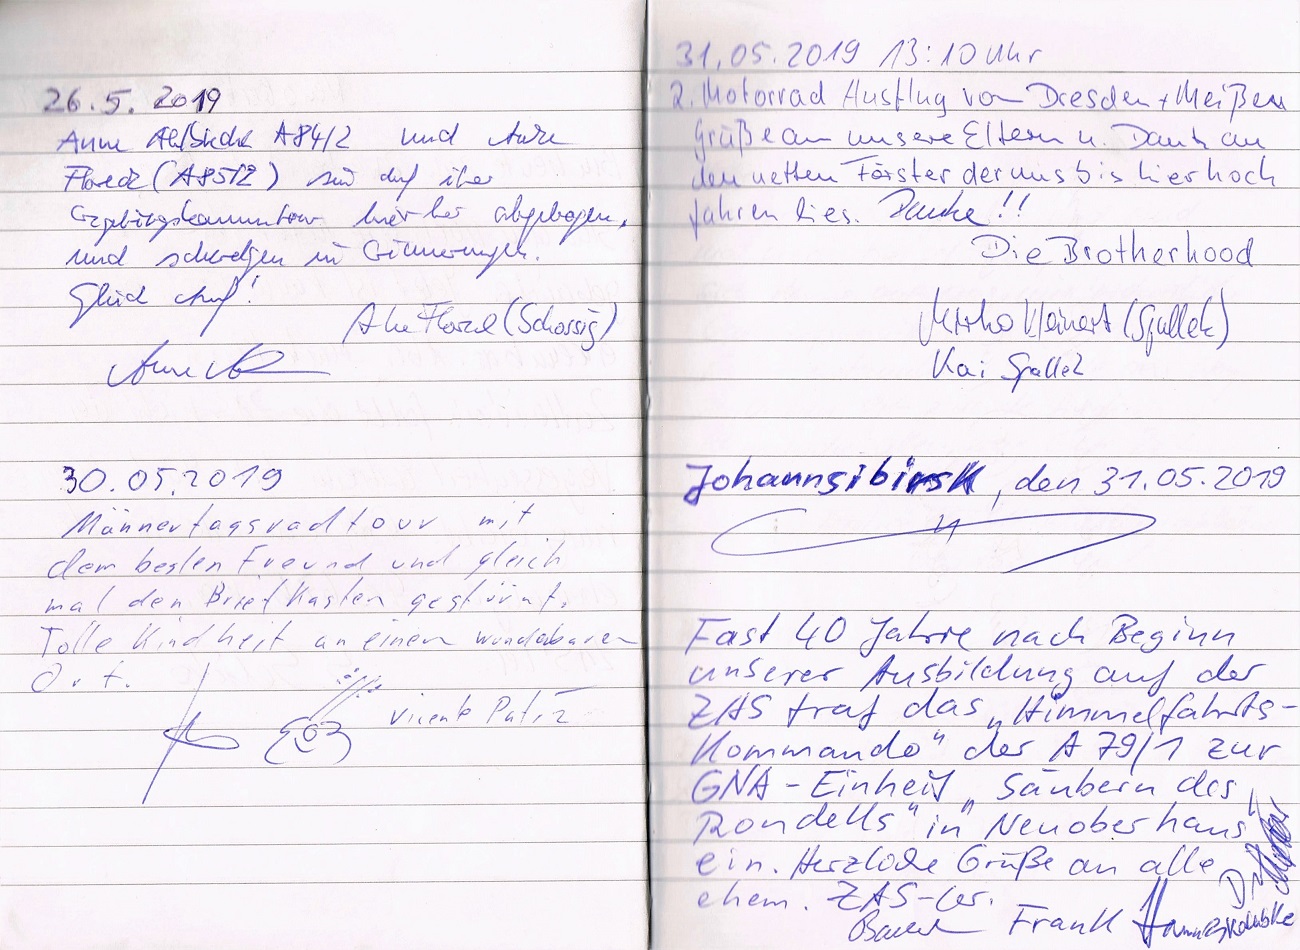 26.5. 2019
Anne A84/2 und Anke
(A85/2) sind auf ihrer
Erzgebirgskammtour hierher abgebogen,
und schwelgen in Erinnerungen.
Glück auf!
(Schossig)
30.05.2019
Männertagsradtour mit
dem besten Freund und gleich
mal den Briefkasten gestürmt.
Tolle Kindheit an einem wundabaren
Ort.
31.05.2019 13:10 Uhr
2. Motorrad Ausflug von Dresden + Meißen
Grüße an unsere Eltern u. Dank an
den netten Förster der uns bis hier hoch
fahren lies. Danke!!
Die Brotherhood
Mirko Kleinert (Spallek)
Kai Spallek
Johannsibirsk, den 31.05.2019
Fast 40 Jahre nach Beginn
unserer Ausbildung auf der
ZAS traf das „Himmelfahrts-
Kommando“ der A 79/1 zur
GNA-Einheit „Säubern des
Rondells“ in „Neuoberhaus“
ein. Herzliche Grüße an alle
ehem. ZAS-ler.
Frank